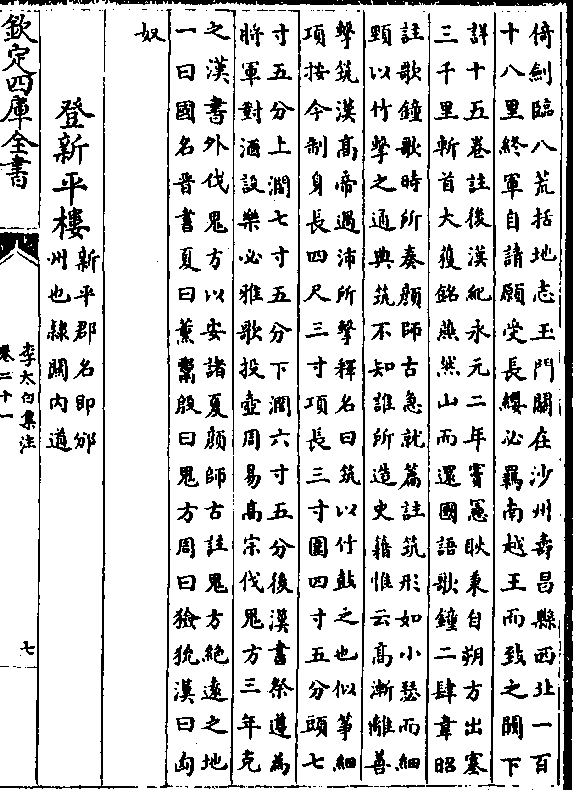 倚劍臨八荒括地志玉門關在沙州壽昌縣西北一百
十八里終軍自請願受長纓必羈南越王而致之闕下
詳十五卷註後漢紀永元二年竇憲耿秉自朔方出塞
三千里斬首大獲銘燕然山而還國語歌鐘二肆韋昭
註歌鐘歌時所奏顔師古急就篇註筑形如小瑟而細
頸以竹擊之通典筑不知誰所造史籍惟云高漸離善
擊筑漢高帝過沛所擊釋名曰筑以竹鼓之也似箏細
項按今制身長四尺三寸項長三寸圍四寸五分頭七
寸五分上濶七寸五分下濶六寸五分後漢書祭遵為
將軍對酒設樂必雅歌投壺周易高宗伐鬼方三年克
之漢書外伐鬼方以安諸夏顔師古註鬼方絶遠之地
一曰國名晉書夏曰薰鬻殷曰鬼方周曰獫狁漢曰匈
奴
登新平樓
新平郡名即邠
州也隸關内道
欽定四庫全書
李太白集注
卷二十一
七